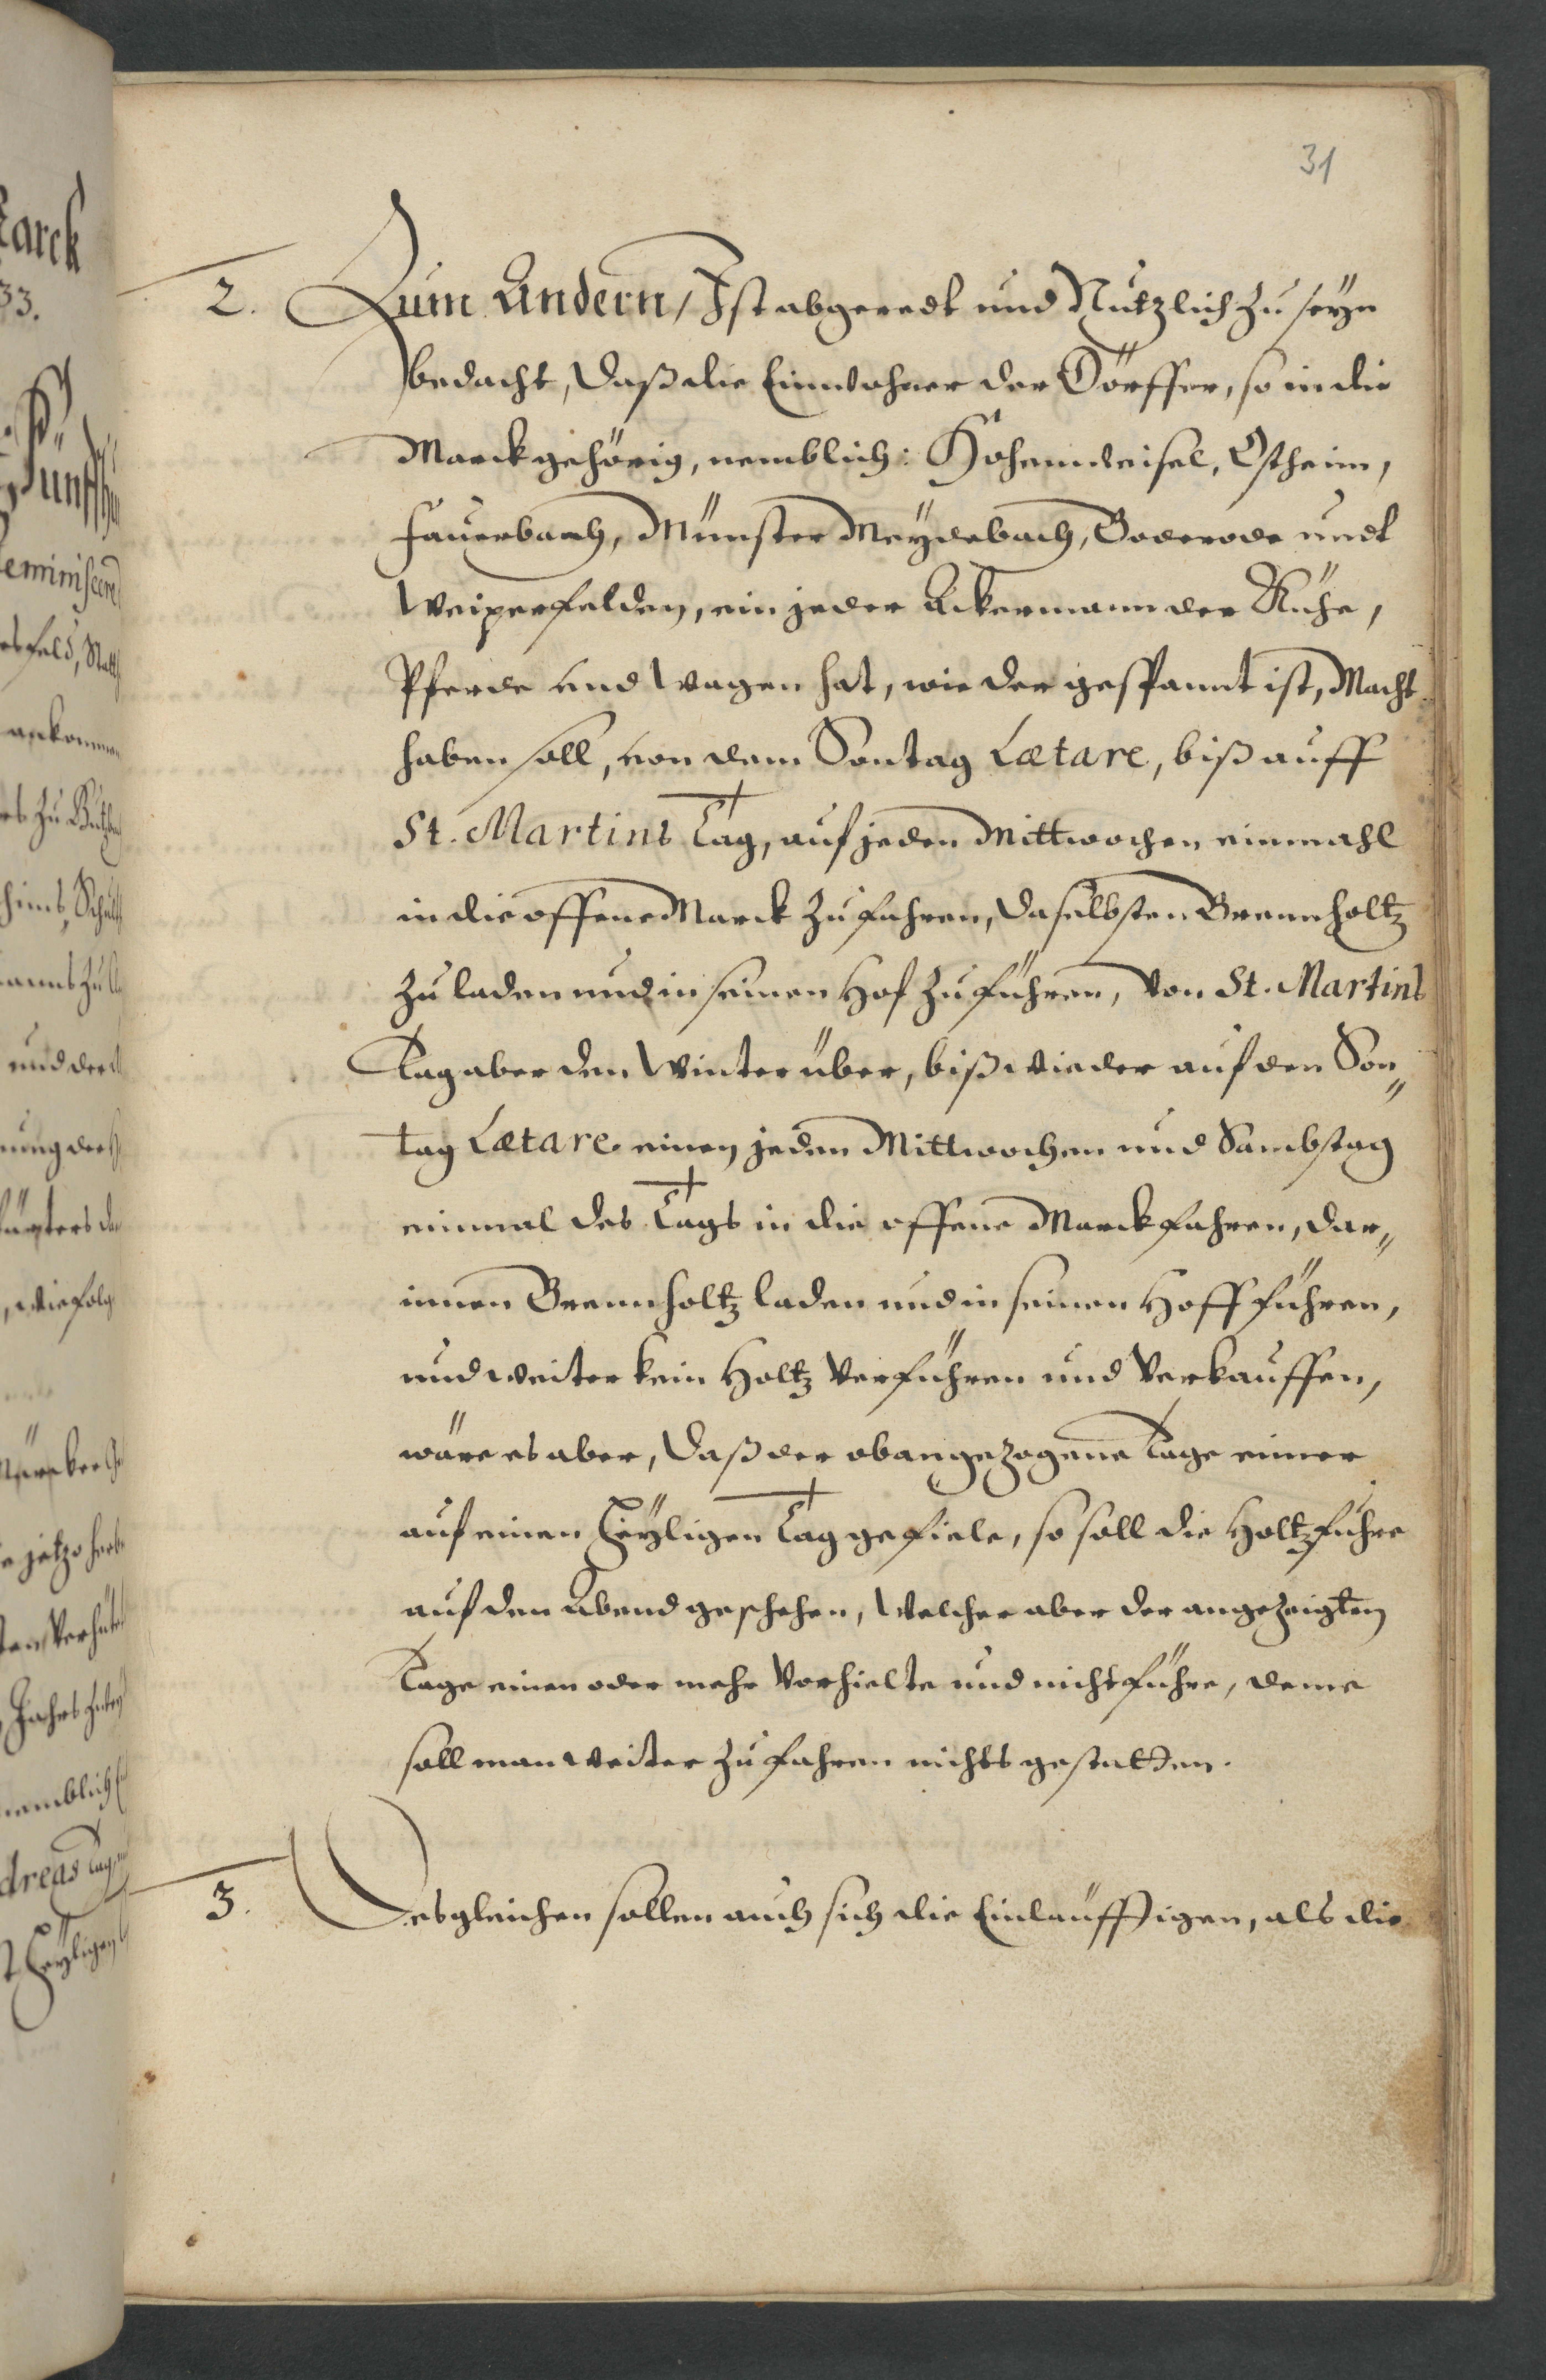 31
2. Zum Andern / Ist abgeredt und Nützlich zu seyn
bedacht, daß die Einwohner der Dörffer, so in die
Marck gehörig, nemblich: Hohenweisel, Ostheim,
Fauerbach, Münster Meydebach, Boderode undt
Weiperfelden, ein jeder Ackermann der Kühe,
Pferde und Wagen hat, wie der gespannt ist, Macht
haben soll, von dem Sontag Lætare, biß auff
St. Martins Tag, auf jeden Mittwochen einmahl
in die offene Marck zu fahren, daselbsten Brennholtz
zu laden und in seinen Hof zu führen, von St. Martins
Tag aber den Winter über, biß wieder auf den Son„
tag Lætare einen jeden Mittwochen und Sambstag
einmal des Tags in die offene Marck fahren, dar„
innen Brennholtz laden und in seinen Hoff führen,
und weiter kein Holtz verführen und verkauffen,
wäre es aber, daß der obangezogene Tage einer
auf einen Heyligen Tag gefiele, so soll die Holtzfuhre
auf den Abend geschehen, Welcher aber der angezeigten
Tage einen oder mehr vorhielte und nicht führe, deme
soll man weiter zu fahren nichts gestatten.
3. Desgleichen sollen auch sich die Einläufftigen, als die